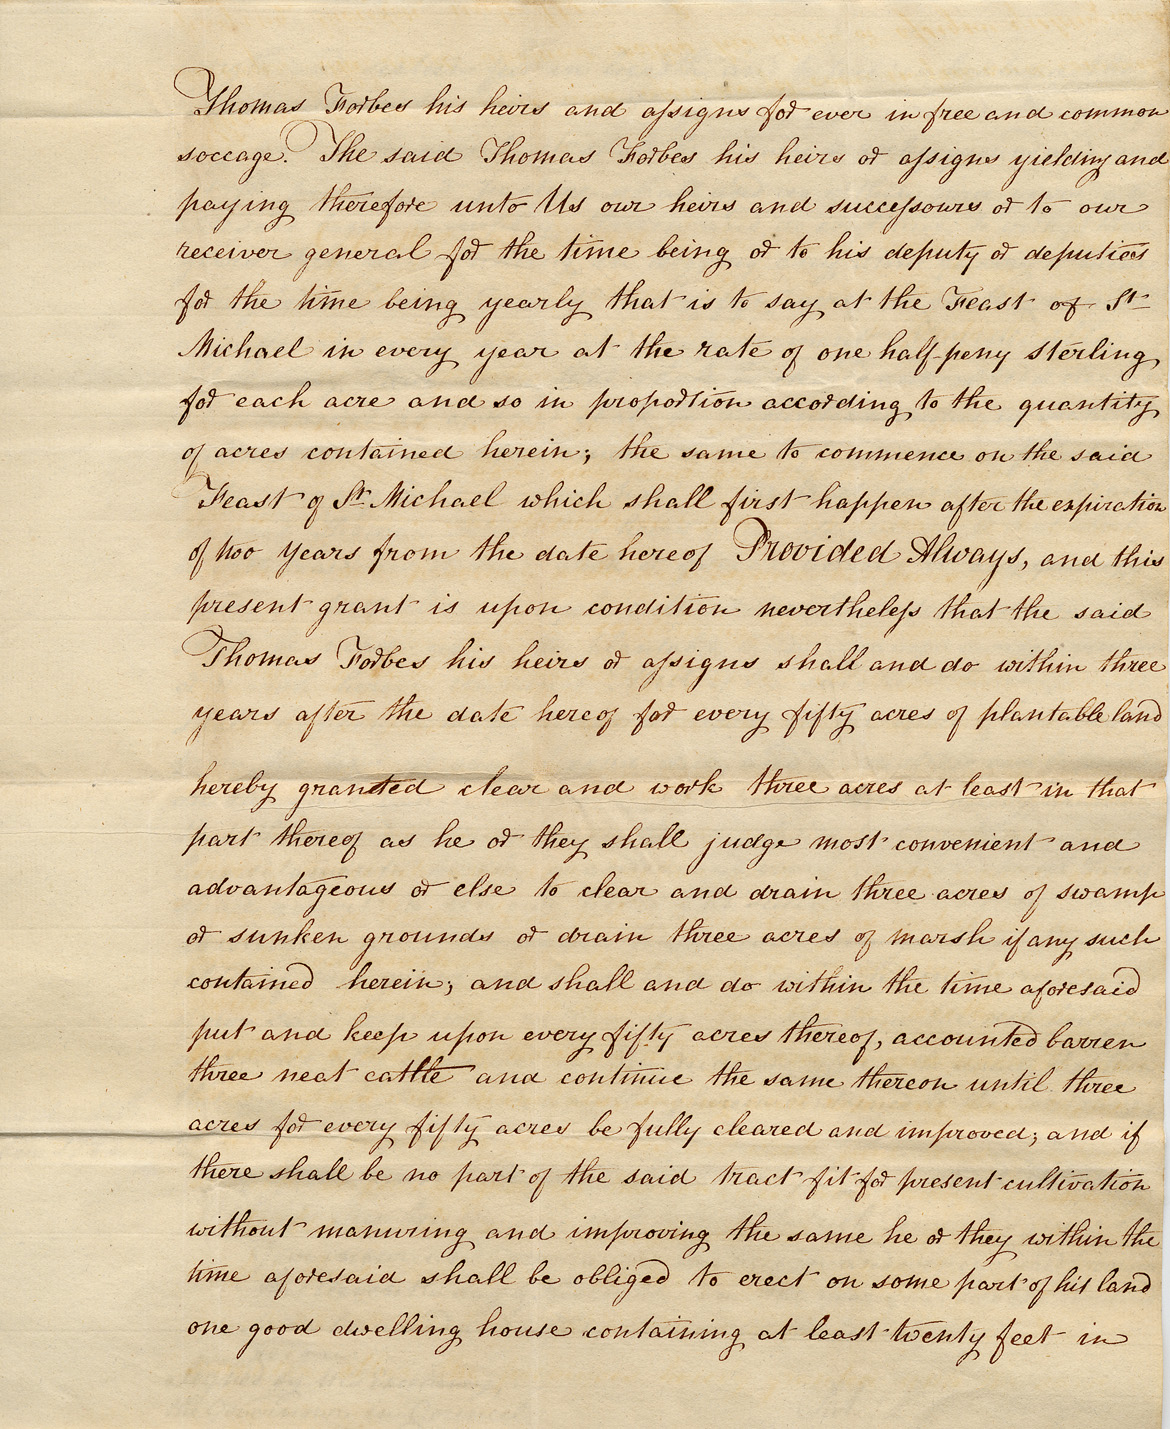 Thomas Forbes his heirs and assigns for ever in free and common
soccage. The said Thomas Forbes his heirs or assigns yielding and
paying therefore unto Us our heirs and successours or to our
receiver general for the time being or to his deputy or deputies
for the time being yearly that is to say at the Feast of St
Michael in every year at the rate of one half-peny sterling
for each acre and so in proportion according to the quantity
of acres contained herein; the same to commence on the said
Feast of St Michael which shall first happen after the expiration
of two years from the date hereof Provided Always, and this
present grant is upon condition nevertheless that the said
Thomas Forbes his heirs or assigns shall and do within three
years after the date hereof for every fifty acres of plantable land
hereby granted clear and work three acres at least in that
part thereof as he or they shall judge most convenient and
advantageous or else to clear and drain three acres of swamp
or sunken grounds or drain three acres of marsh if any such
contained herein; and shall and do within the time aforesaid
put and keep upon every fifty acres thereof, accounted barren
three neat cattle and continue the same thereon until three
acres for every fifty acres be fully cleared and improved; and if
there shall be no part of the said tract fit for present cultivation
without manuring and improving the same he or they within the
time aforesaid shall be obliged to erect on some part of his land
one good dwelling house containing at least twenty feet in